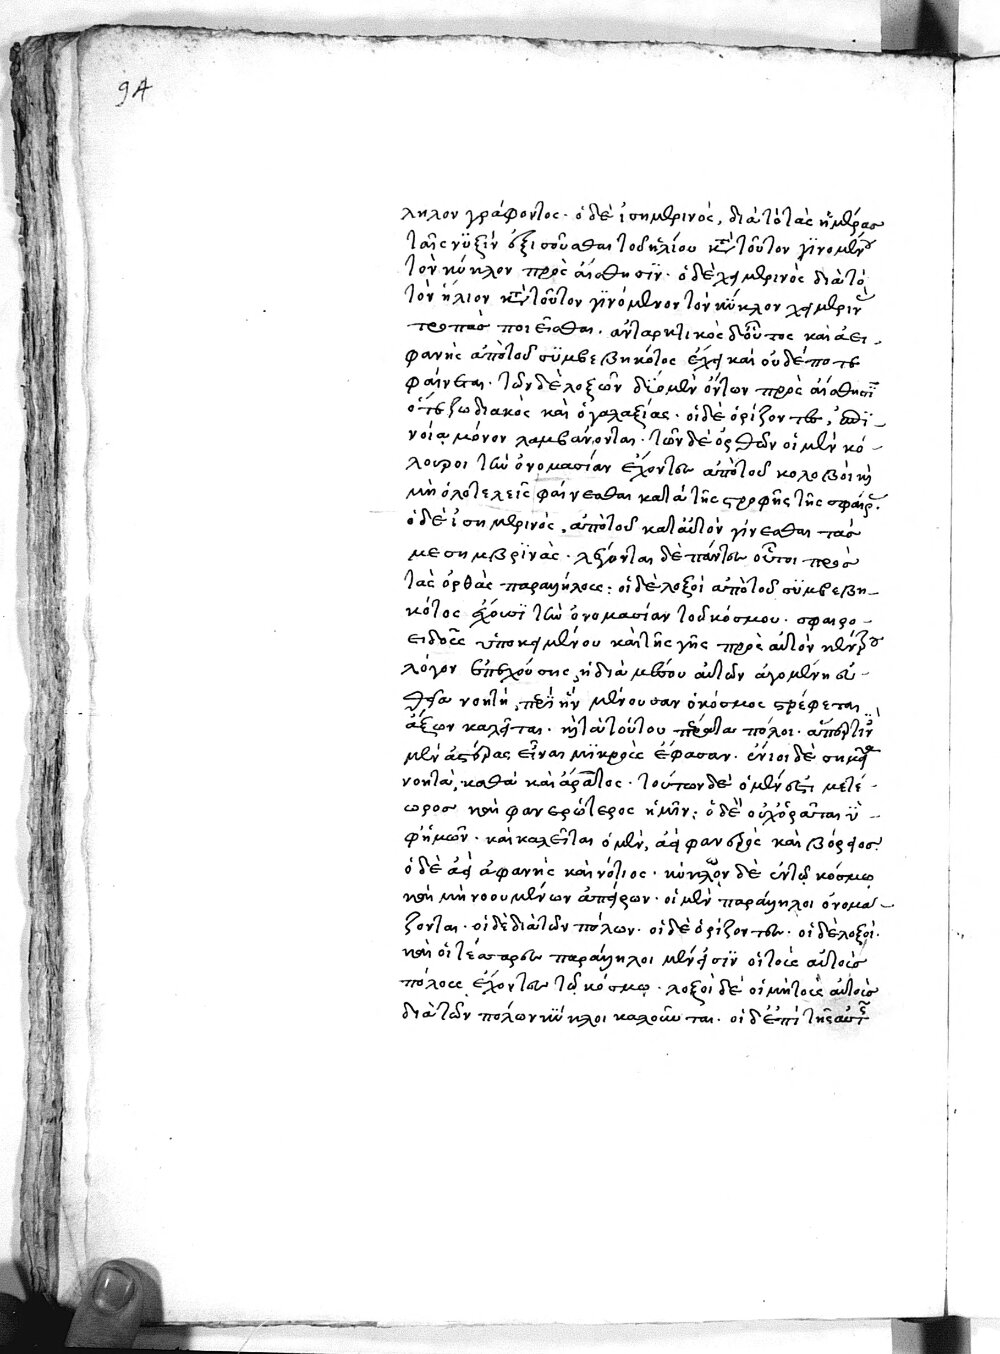 94
ληλον γράφοντος· ὁ δὲ ἰσημερινὸς, διὰ τὸ τὰς ἡμέρας
ταῖς νυξὶν ἐξισοῦσθαι τοῦ ἡλίου κατὰ τοῦτον γινομένου
τὸν κύκλον πρὸς αἴσθησϊν· ὁ δὲ χειμερινὸς διὰ τὸ
τὸν ἥλιον κατὰ τοῦτον γϊνόμενον τὸν κύκλον χειμερινὰς
τροπὰς ποιεῖσθαι. ἀνταρκτικὸς δ' οὗτος καὶ ἀει-
φανὴς ἀπὸ τοῦ συμβεβηκότος ἔχει καὶ οὐδέποτε
φαίνεται· τῶν δὲ λοξῶν δύο μὲν ὄντων πρὸς αἴσθησϊν
ὅ τε ζωδιακὸς καὶ ὁ γαλαξίας. οἱ δὲ ὁρίζοντες, ἐπϊ-
νοίᾳ μόνον λαμβάνονται· τῶν δὲ ὀρθῶν οἱ μὲν κό-
λουροι τὴν ὀνομασίαν ἔχοντες ἀπὸ τοῦ κολοβοὶ καὶ
μὴ ὁλοτελεῖς φαίνεσθαι κατὰ τῆς στροφῆς τῆς σφαίρας.
ὁ δὲ ἰσημερινὸς, ἀπὸ τοῦ κατ' αὐτὸν γίνεσθαι τὰς
μεσημβρϊνάς· λέγονται δὲ πάντες οὗτοι πρὸς
τὰς ὀρθὰς παραλλήλους: οἱ δὲ λοξοὶ ἀπὸ τοῦ συμβεβη-
κότος ἔχουσϊ τὴν ὀνομασίαν τοῦ κόσμου. σφαιρο-
ειδοῦς ὑποκειμένου καὶ τῆς γῆς πρὸς αὐτὸν κέντρου
λόγον ἐπεχούσης, ἡ διὰ μέσου αὐτῶν ἀγομένη εὐ-
θεῖα νοητὴ, περὶ ἣν μένουσαν ὁ κόσμος στρέφεται
ἄξων καλεῖται. καὶ τὰ τούτου πέρατα πόλοι. ἀφ' ὧν τινὲς
μὲν ἀστέρας εἶναι μϊκροὺς ἔφασαν. ἔνιοι δὲ σημεῖα
νοητὰ, καθὰ καὶ ἄρατος· τούτων δὲ ὁ μέν ἐστι μετέ-
ωρος καὶ φανερώτερος ἡμῖν: ὁ δὲ οὐχ ὁρᾶται ὑ-
φ' ἡμῶν. καὶ καλεῖται ὁ μὲν, ἀειφανὴς καὶ βόρειος·
ὁ δὲ ἀεὶ ἀφανὴς καὶ νότιος· κύκλων δὲ ἐν τῷ κόσμῳ
καὶ μὴ νοουμένων ἀπείρων· οἱ μὲν παράλληλοι ὀνομά-
ζονται. οἱ δὲ διὰ τῶν πόλων. οἱ δὲ ὁρίζοντες. οἱ δὲ λοξοί.
καὶ οἱ τέσσαρες παράλληλοι μέν εἰσϊν οἱ τοὺς αὐτοὺς
πόλους ἔχοντες τῷ κόσμῳ. λοξοὶ δὲ οἱ μὴ τοὺς αὐτούς
διὰ τῶν πόλων κύκλοι καλοῦνται. οἱ δ' ἐπὶ τῆς αὐτῆς